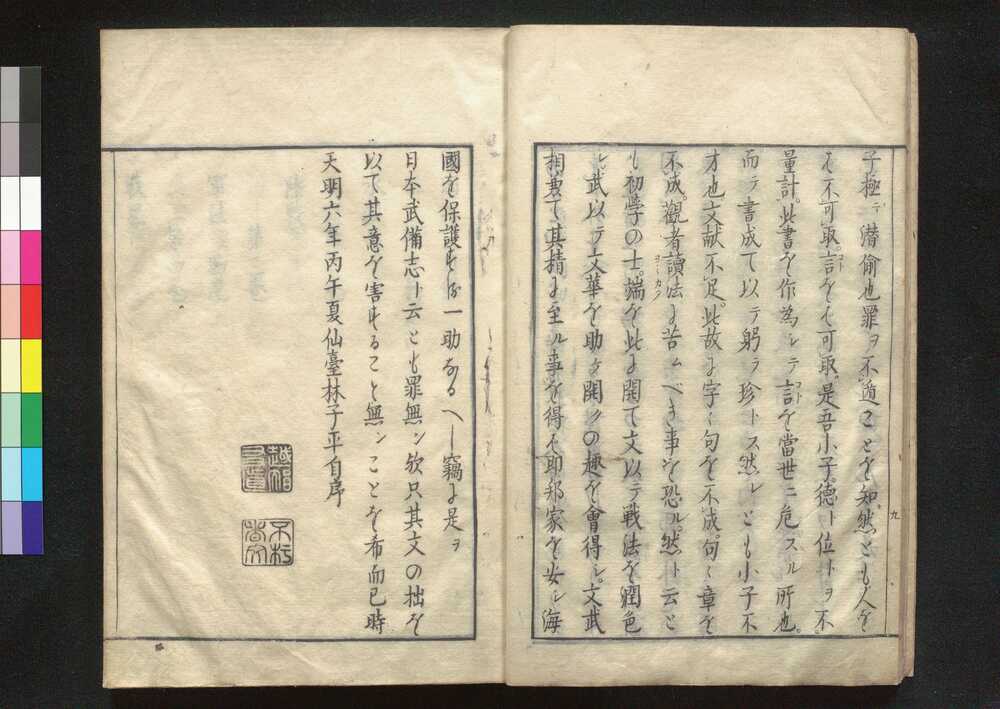 子極テ潜偷也罪ヲ不遁ことを知然とも人を
そ不可取言をそ可取是吾小子徳ト位トヲ不
量計此書を作為シテ言を當世ニ危スル所也
而テ書成て以テ躬ラ珍トス然レとも小子不
才也文献不足此故よ字〻句を不成句〻章を
不成觀者讀法よ苦ムべき事を恐ル然ト云と
も初学の士端を此よ開て文以テ戦法を潤色
し武以テ文華を助クの趣を會得し文武
相兼て其精よ至ル事を得そ即邦家を安シ海
國を保護するの一助なるへし竊よ是ヲ
日本武備志ト云とも罪無ン欤只其文の拙を
以て其意を害すること無ンことを希而已時
天明六年丙午夏仙臺林子平自序
九